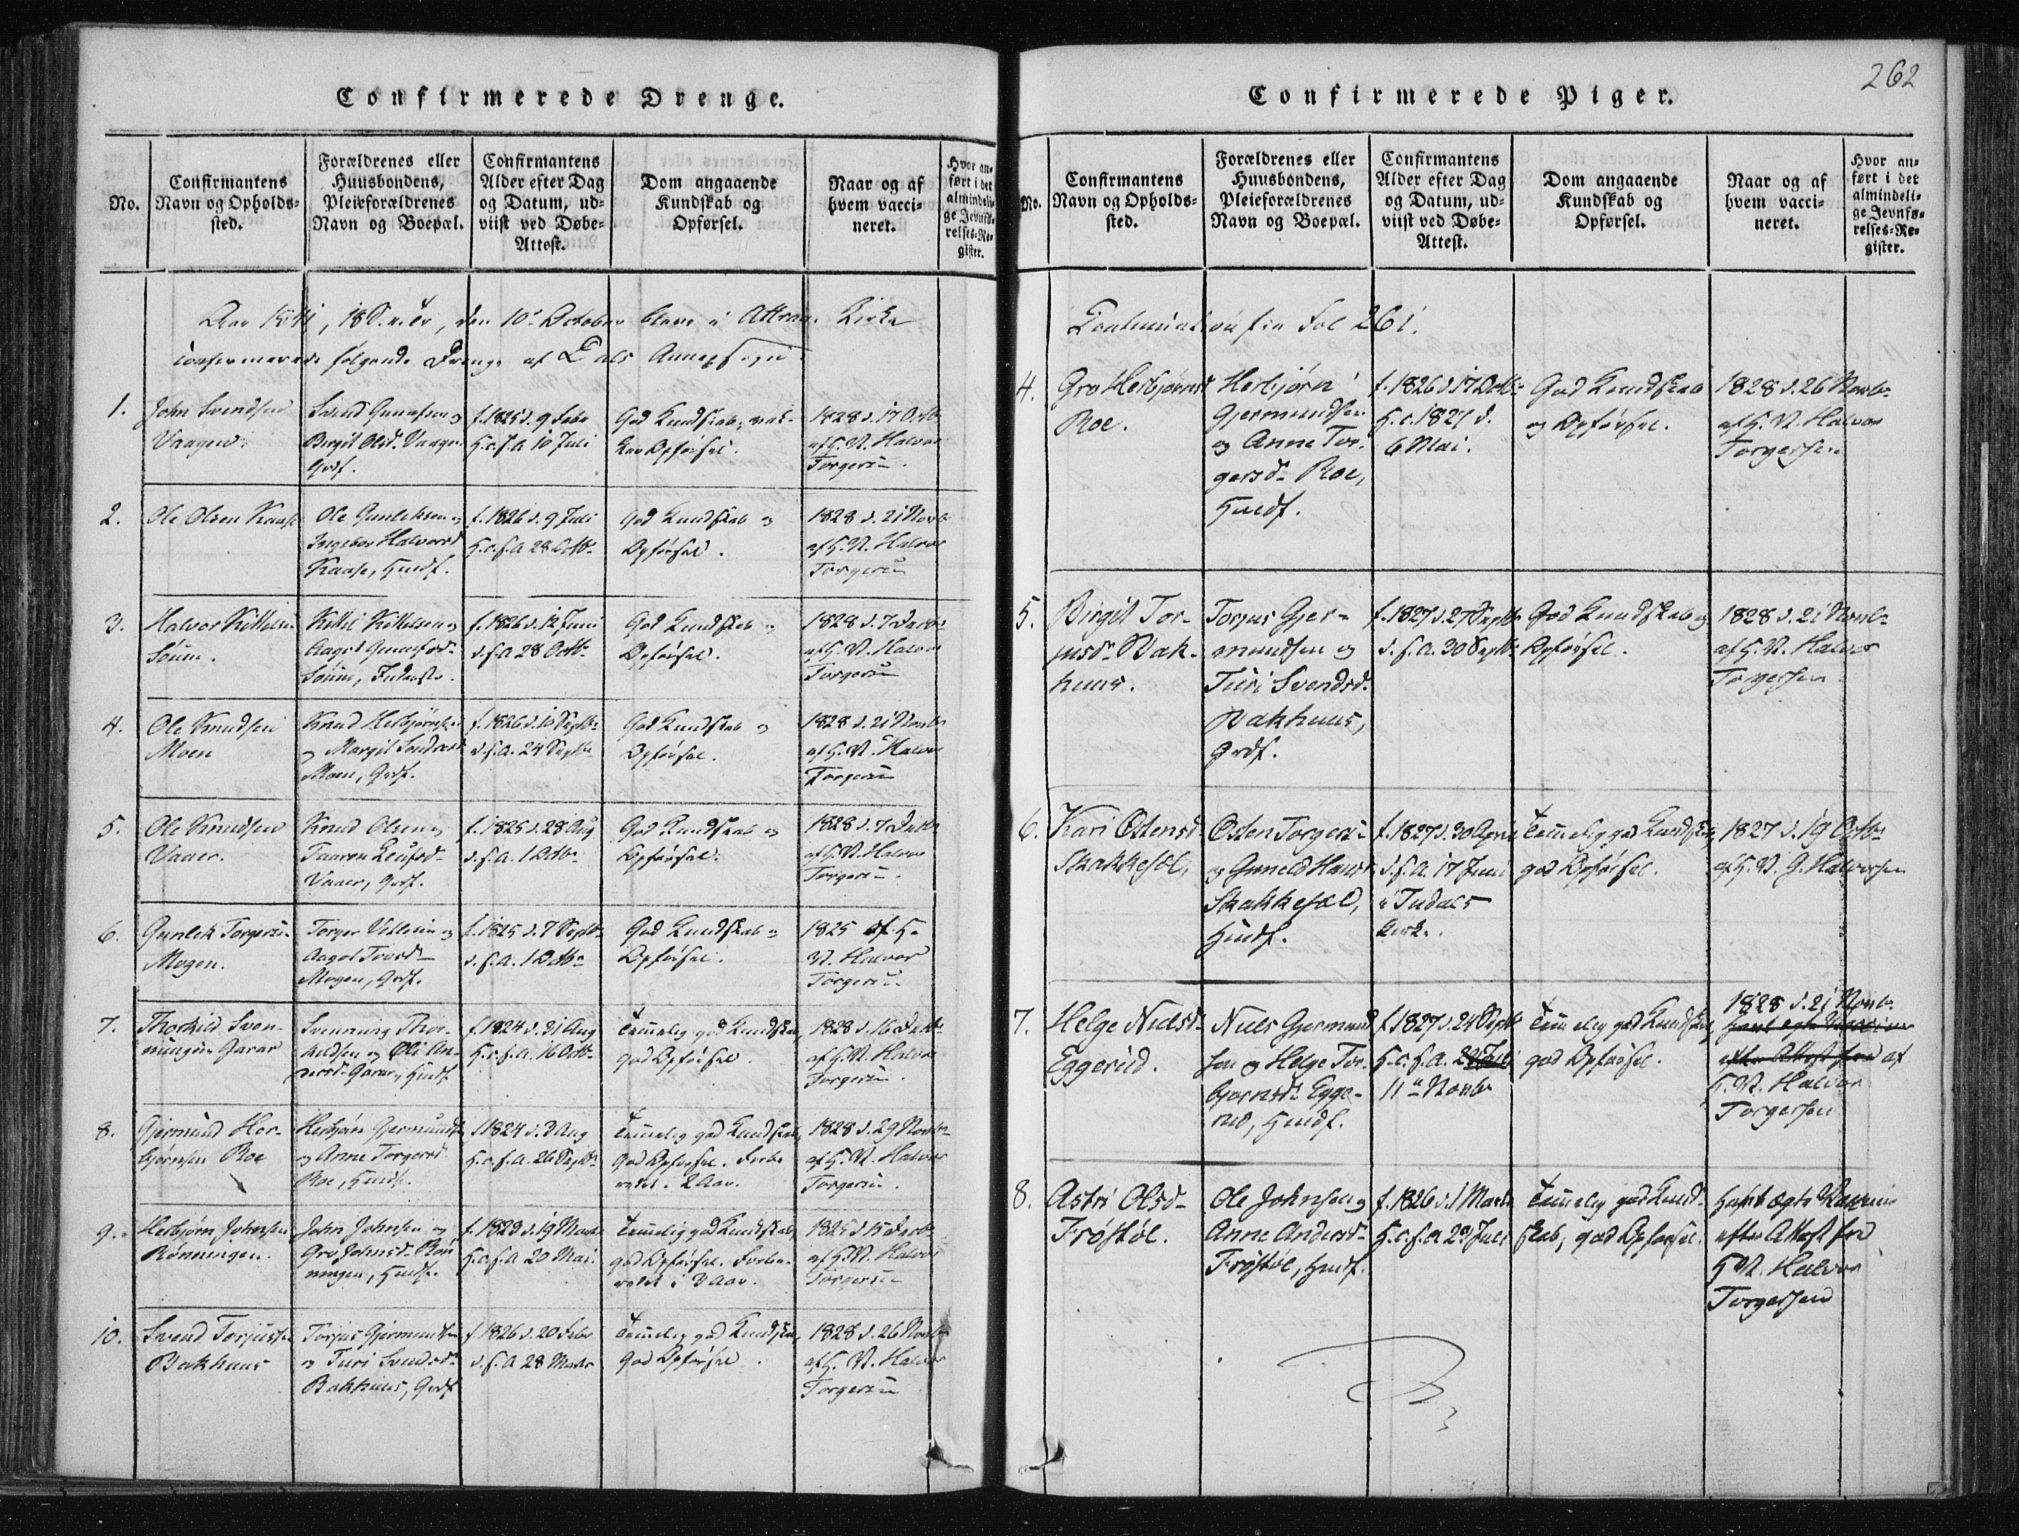 262
Confirmerede Drenge.
No.
Confirmantens
Navn og Opholds-
sted.
Forældrenes eller
Huusbondens,
Pleieforældrenes
Navn og Boepæl.
Confirmantens
Alder efter Dag
og Datum, ud-
viist ved Døbe-
Attest.
Dom angaaende
Kundskab og
Opførsel.
Naar og af
hvem vacci-
neret.
Hvor an-
ført i det
almindeli-
ge Jevnfø-
relses-Re-
gister.
Aar 1841, 18 S. e. Tr, den 10de October blev i Attraa Kirke
confirmerede følgende Drenge af Annexsogn
1.
John Svendsen
Vaagen
Svend
Birgit Olsd. Vaagen
Grdf.
f. 1825 d. 9 Febr
H.c.f.a 10 Juli
God Kundskab,
Opførsel.
1828 d. 17 Octb
af H. N. Halvor
Torgersen
2.
Ole Olsen Kaase
Ole Gunleksen og
Ingebor Halvorsd
Kaase, Huusf.
f. 1826 d. 9 Juli
H.c.f.a 28 Octb
God Kundskab og
Opførsel.
1828 d. 21 Novb
af H. N. Halvor
Torgersen
3.
Halvor Kittilsen
Søum.
Kittil Kittilsen og
Aagot
Søum,
f. 1826 d. 12 Juni
d.f.a 28 Octb
God Kundskab og
Opførsel.
1828 d. 7
af H. N. Halvor
Torgersen
4.
Ole Knudsen
Moen
Knud Herbjørnsen
og Margit
Moen, Grdf.
f. 1826 d. 10 Septb
d.f.a. 24 Septb
God Kundskab og
Opførsel.
1828 d. 21 Novb
af H. N. Halvor
Torgersen
5.
Ole Knudsen
Vaaer.
Knud Olsen og
Taaron
Vaaer, Grdf.
f. 1825 d. 28 Aug
d.f.a. 1 Octb
God Kundskab og
Opførsel.
1828 d. 7
af H. N. Halvor
Torgersen
6.
Gunlek Torgersen
Mogen.
Torger Villesen og
Aagot
Mogen, Grdf.
f. 1825 d. 7 Septb
d.f.a. 1 Octb
God Kundskab og
Opførsel.
1825 af H.
N. Halvor
Torgersen
7.
Thorkild Sven-
nungsen Garar
Svennung Thor-
kildsen og
Garar, Huusf.
f. 1824 d. 31 Aug
H.c.f.a. 16 Octb
Temmelig god Kundskab,
god Opførsel.
1828 d. 16
af H. N. Halvor
Torgersen.
8.
Gjermund Her-
bjørnsen Roe
Herbjørn Gjermunds
og Anne Torgersd
Roe, Huusf.
f. 1824 d. 3 Aug
H.c.f.a. 26 Septb
Temmelig god Kundskab,
god Opførsel. Forbe
redet i 2 Aar.
1828 d. 29 Novb
af H. N. Halvor
Torgersen.
9.
Herbjørn Johnsen
Rønningen.
John Johnsen og
Gro Johnsd. Røn
ningen, Huusf.
f. 1823 d. 19 Marts
H.c.f.a 20 Mai
Temmelig god Kundskab,
god Opførsel. Forbe-
redet i 3 Aar.
1825 d. 15
af H. N. Halvor
Torgersen
10.
Svend Torjussen
Bakhuus
Torjus Gjermundsen
og Turi Svendsd
Bakhuus, Grdf
f. 1826 d. 20 Febr
d.f.a 28 Marts
Temmelig god Kundskab,
God Opførsel.
1828 d. 26 Novb
af H. N. Halvor
Torgersen
Confirmerede Piger.
No.
Confirmantens
Navn og Opholds-
sted.
Forældrenes eller
Huusbondens,
Pleieforældrenes
Navn og Boepæl.
Confirmantens
Alder efter Dag
og Datum, ud-
viist ved Døbe-
Attest.
Dom angaaende
Kundskab og
Opførsel.
Naar og af
hvem vacci-
neret.
Hvor an-
ført i det
almindeli-
ge Jevnfø-
relses-Re-
gister.
fra Fol 261.
4.
Gro Herbjørnsd
Roe.
Herbjørn
Gjermundsen
og Anne Tor-
gersd Roe,
Huusf.
f. 1826 d. 17 Octb
H.c. 1827 d.
6 Mai.
God Kundskab
og Opførsel.
1828 d. 26 Novb
af H. N. Halvor
Torgersen
5.
Birgit Tor-
jusd Bak-
huus.
Torjus Gjer-
mundsen og
Turi Svendsd.
Bakhuus,
Grdf.
f. 1827 d. 27 Septb
d.f.a. 30 Septb
God Kundskab og
Opførsel.
1828 d. 21 Novb
af H. N. Halvor
Torgersen.
6.
Kari Ostensd
Skakkesæl,
Osten Torgersen
og Gunild
Skakkesæl,
Huusf.
f. 1827 d. 30 April
d.f.a. 17 Juni
i Tudals
Kirke.
Temmelig god Kundskab,
god Opførsel.
1827 d. 19 Octb
af H. N. G. Halvorsen
7.
Helge Nielsd
Eggerud.
Niels Gjermund
sen og Helge Tor-
bjørnsd Egge-
rud, Huusf.
f. 1827 d. 24 Septb
H.c.f.a.
11te Novb
Temmelig god Kundskab,
god Opførsel.
1828 d. 21 Novb
af
H. N. Halvor
Torgersen
8.
Astri Olsd
Frøstøl.
Ole Johnsen og
Anne Andersd
Frøstøl, Huusf.
f. 1826 d. 1 Marts
H.c.f.a 2d Juli
Temmelig god Kund-
skab, god Opførsel.
Havt ægte Vaccine
efter Attest fra
H. N. Halvor
Torgersen